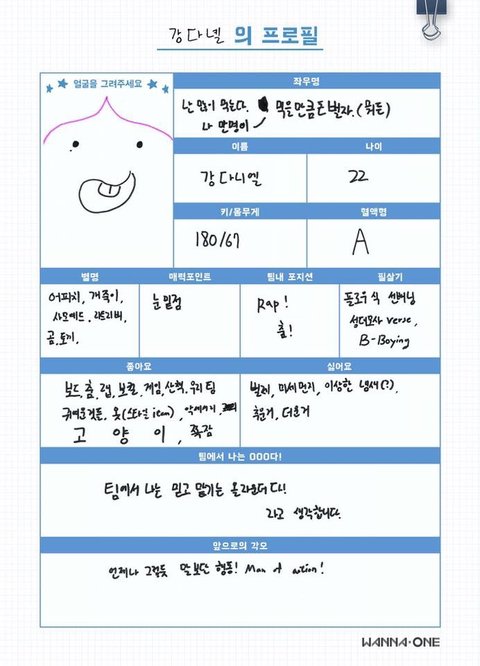 강다넬 의 프로필
얼굴을 그려주세요
좌우명
난 많이 먹는다. 먹을만큼 돈 벌자. (뭐든)
나 만명이
이름
나이
강다니엘
22
키/몸무게
혈액형
180/67
A
별명
매력포인트
팀내 포지션
필살기
어피치, 개죽이,
사모예드,
곰, 토끼,
눈밑점
Rap!
춤!
플로우식
성대모사 verse,
B-Boying
좋아요
싫어요
보드, 춤, 랩, 보컬, 게임, 산책, 우리팀
귀여운것들, 옷(
고 양 이, 족감
벌레, 미세먼지, 이상한 냄새(?),
추운거, 더운거
팀에서 나는 OOO다!
팀에서 나는 믿고 맡기는 올라운더다!
라고 생각합니다.
앞으로의 각오
언제나 그렇듯 말보단 행동! Man of action!
WANNA·ONE